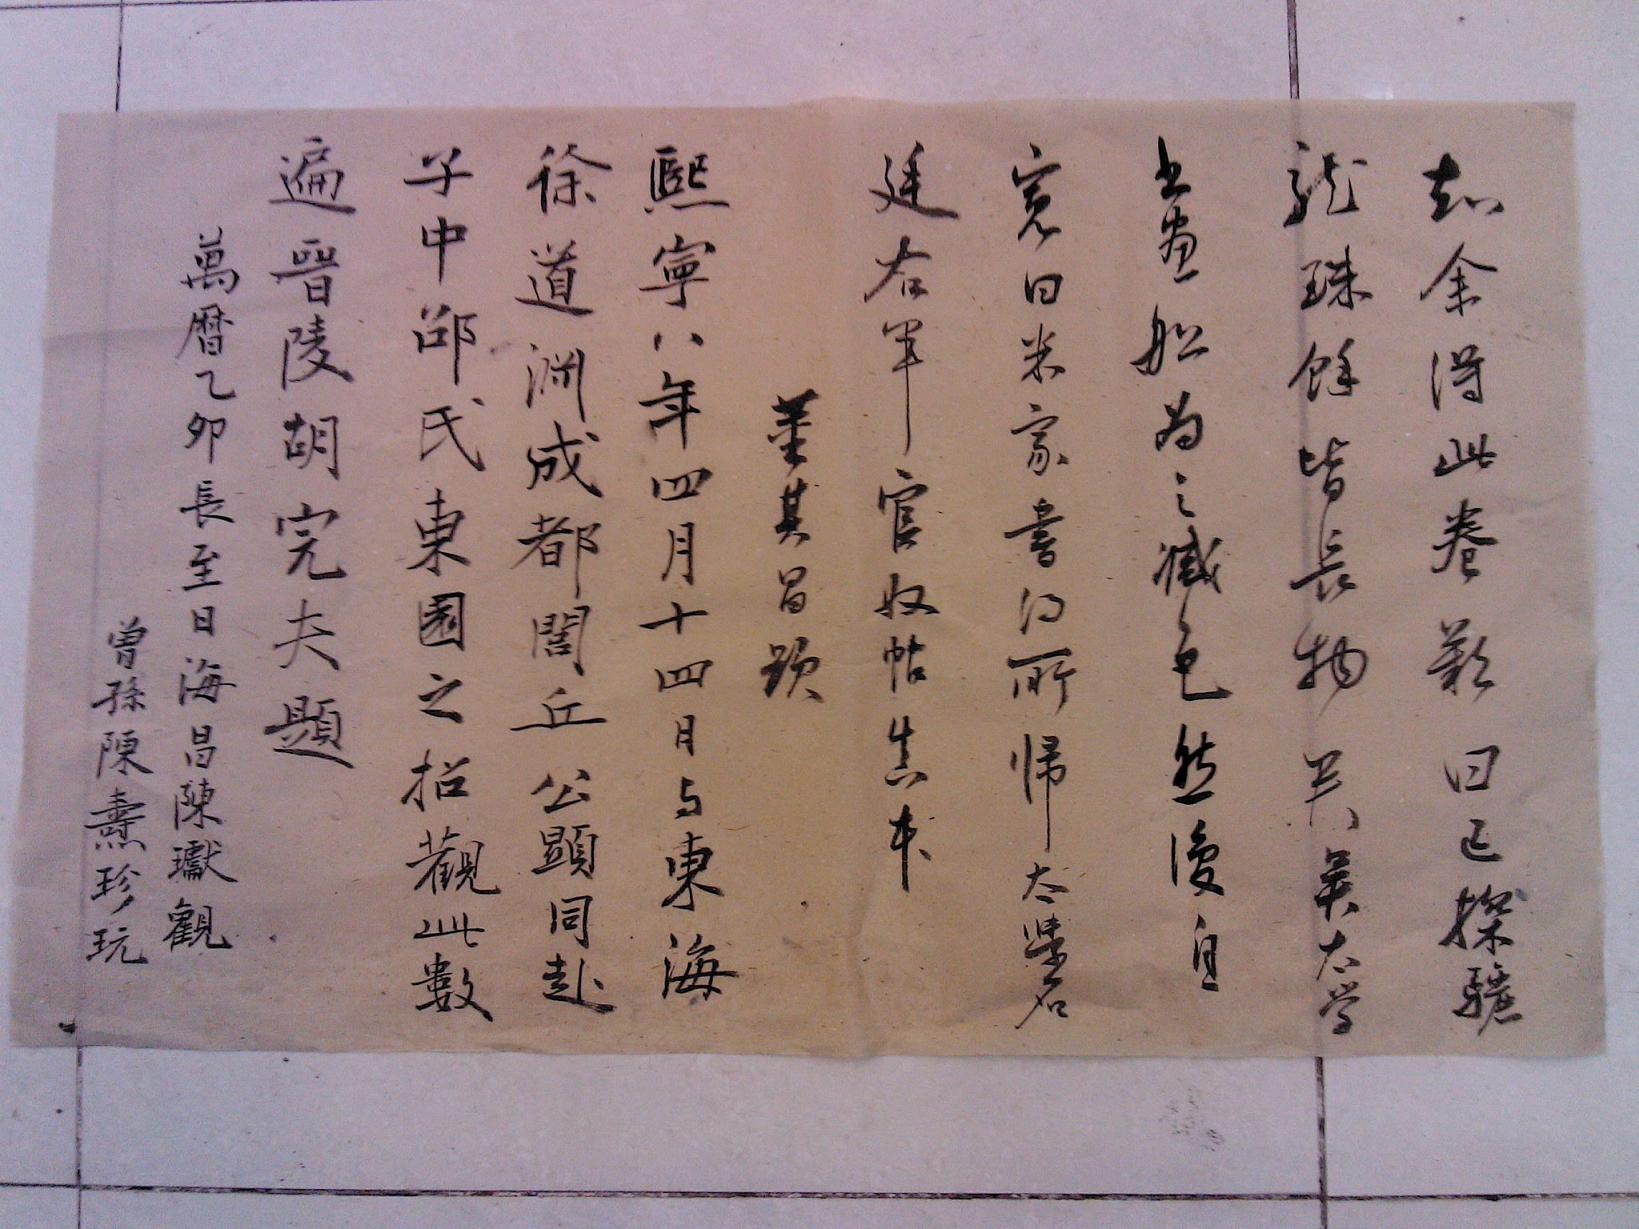 知余得此卷歎曰已探驪
龍珠餘皆長物矣吳太學
書畫船為之減色然後自
寬曰米家書得所歸太學名
廷右軍官奴帖真本
董其昌題
熙寧八年四月十四日与東海
徐道淵成都閭丘公顯同赴
子中邵氏東園之招觀此數
遍晉陵胡完夫題
萬曆乙卯長至日海昌陳瓛觀
曾孫陳燾珍玩